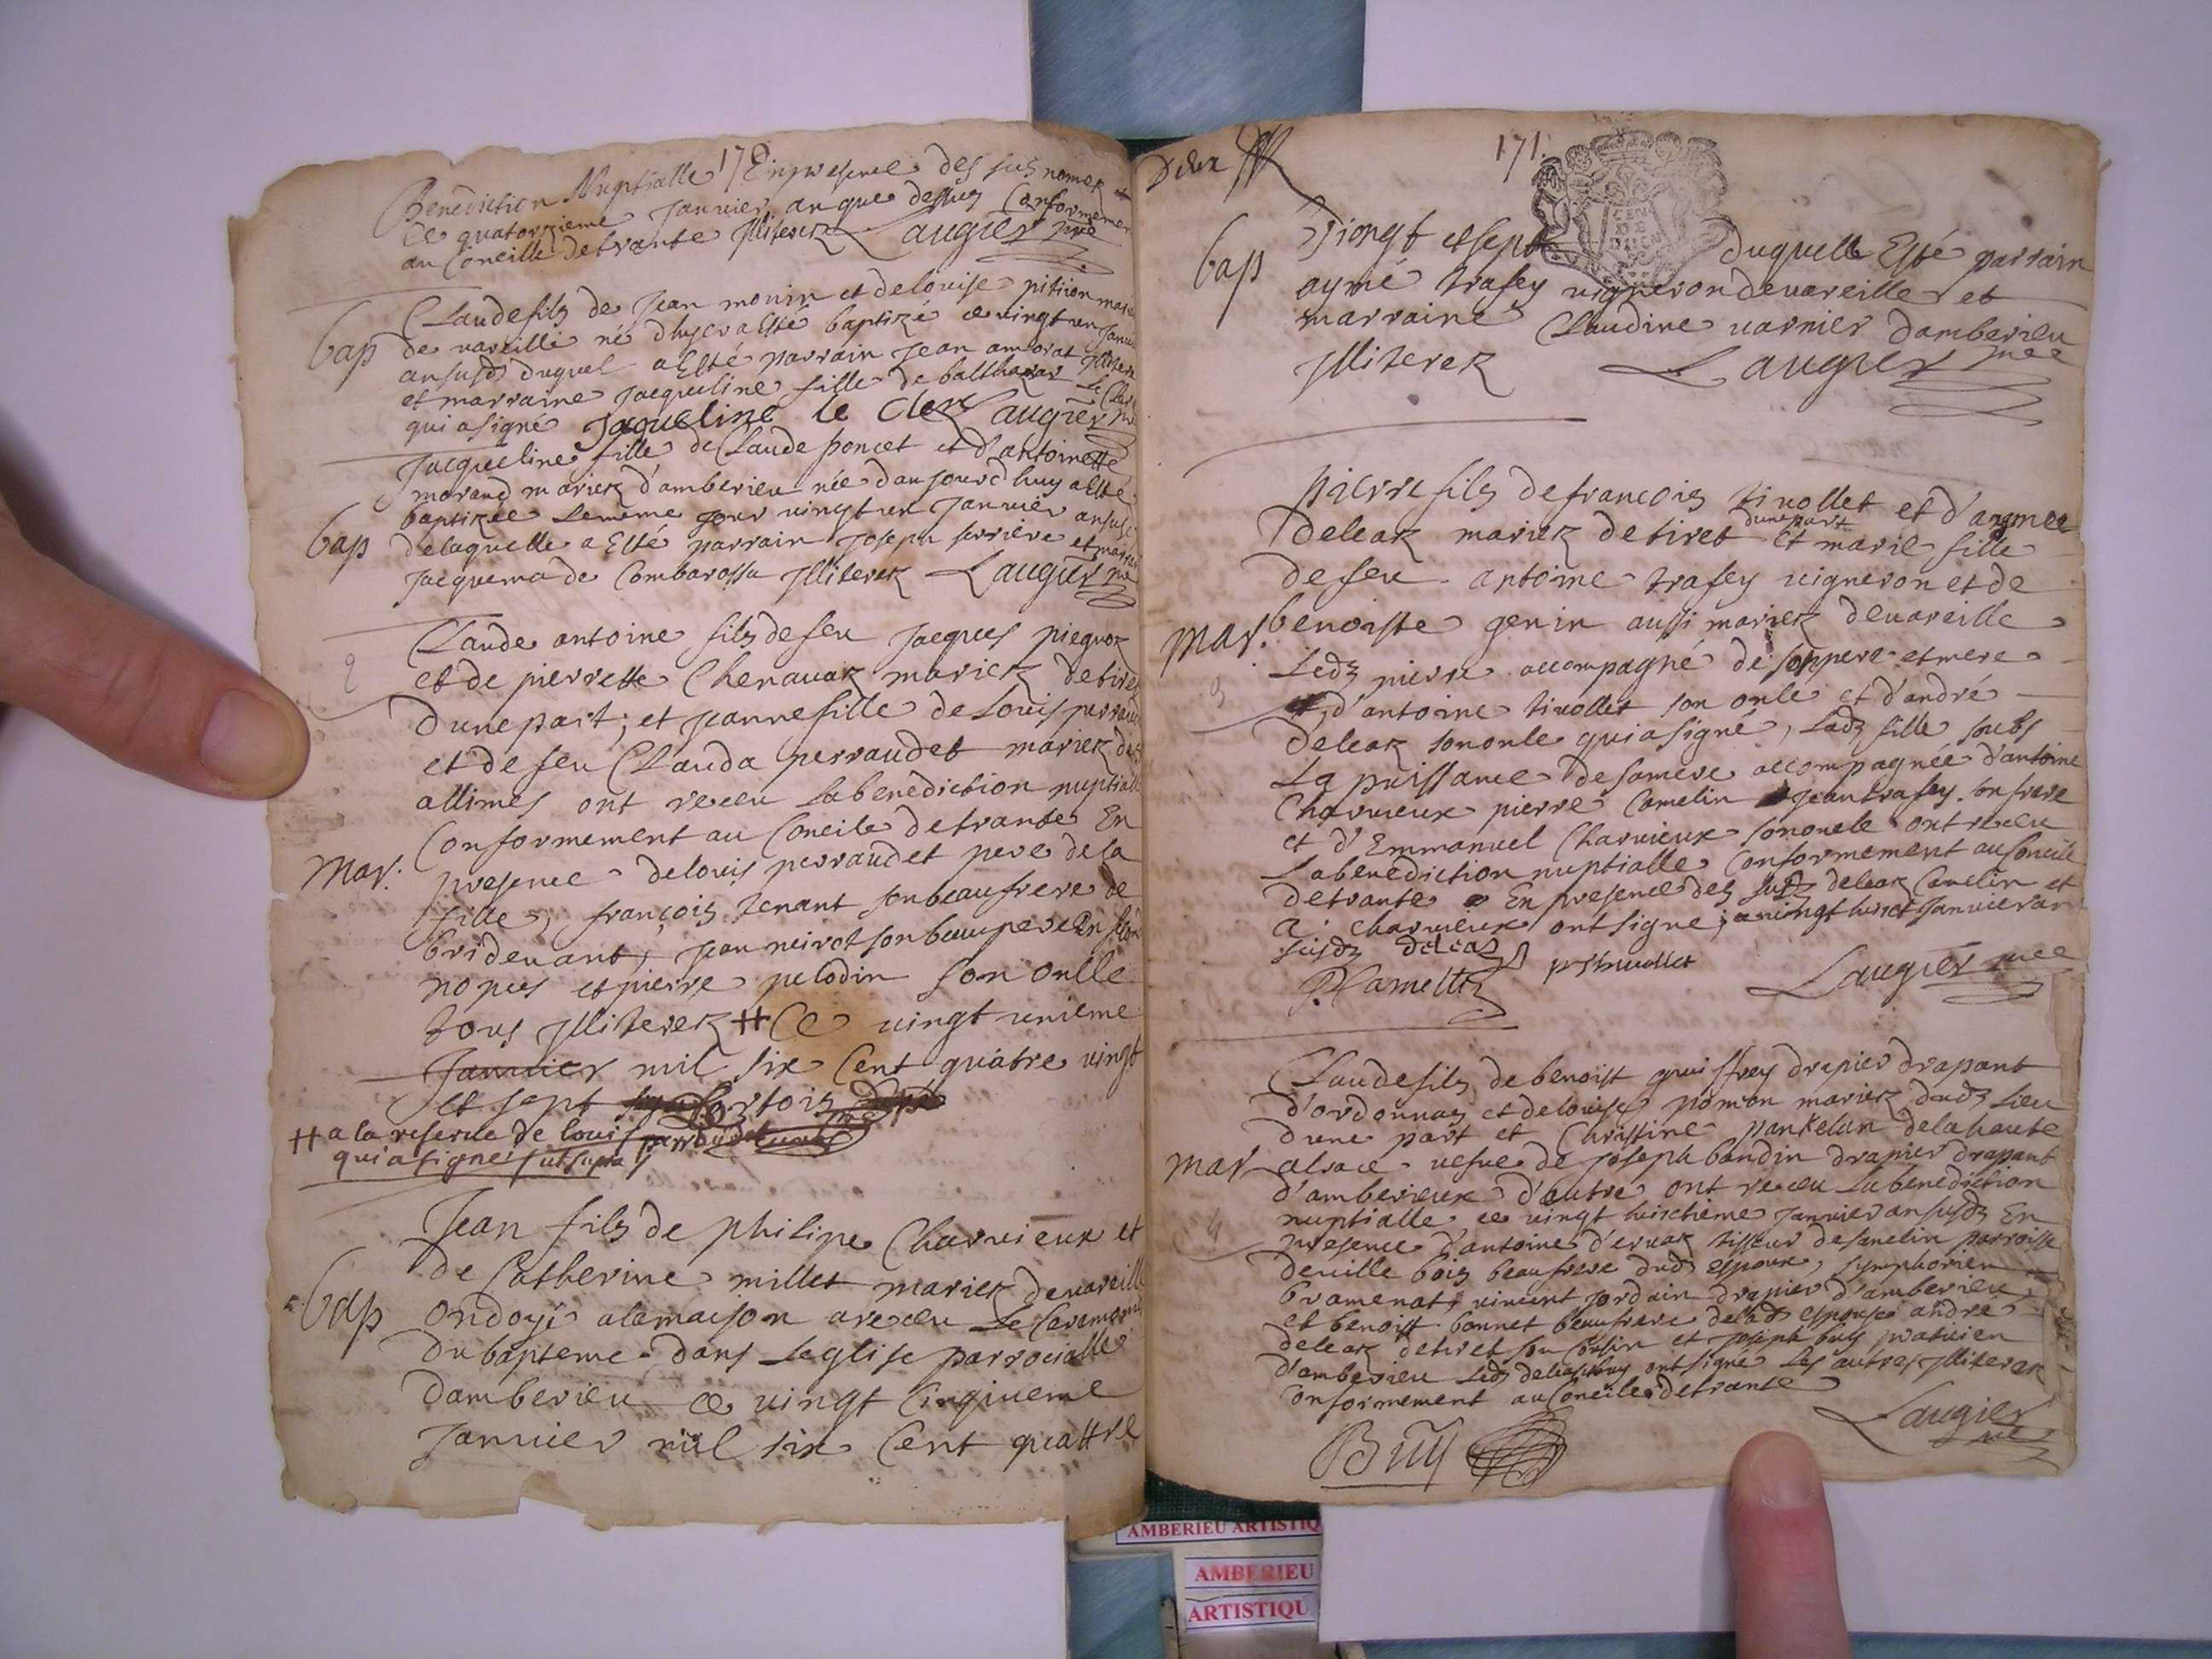 170
Benediction Nuptialle En presence des susnomez
ce quatorzieme Janvier an que dessus Conformement
au Concille detrante Illiterez Laugier pbre
Bap
Claude fils de Jean monin et delouise pition mariez
de vareille né dhyer a Esté baptizé ce vingt un Janvier
an susd duquel a Esté parrain Jean amorat Illitere
et marraine Jacqueline fille de balthazar Le Clerc
qui a signé Jaqueline le Clerc Laugier
Jacqueline fille de Claude poncet et d'antoinette
morand mariez d'amberieu née d'aujourdhuy a Esté
Bap
baptizée Lememe jour vingt un Janvier an susd
delaquelle a Esté parrain Joseph serriere et marraine
Jacquema de Combarossa Illiterez Laugier pbre
2
Claude antoine fils de feu Jacques piegnoz
et de pierrette Chenavaz mariez detiret
d'une part; et Jeanne fille de Louis perraudet
et de feu Clauda perraudet mariez des
allimes ont receu Labenediction nuptialle
Conformement au Concile detrante En
Mar:
presence delouis perraudet pere de la
fille, françois tenant son beaufrere de
bridevant, Jean neirot son beaupere
et pierre pelodin son onlle
tous Illiterez ++ Ce vingt unieme
Janvier mil six Cent quatre vingt
et sept
++ a la reserve de louis perraudet
qui a signé ut supra
Jean fils de philipe Charvieux et
de Catherine millet mariez devareille
Bap
ondoyé alamaison a receu Le Ceremonies
du bapteme dans Leglise parrocialle
damberieu ce vingt Cinqiueme
Janvier mil six Cent quattre
171.
GEN DE
Viongt et sept duquelle Esté parrain
Bap
aymé trasey vigneron de vareille et
marraine Claudine varnier d'amberieu
Illiterez Laugier
pierre fils de françois tivollet et d'aymee
deleaz mariez de tiret d'une part et marie fille
de feu antoine trafey vigneron et de
Mar:
benoiste genin aussi mariez devareille
Ledz pierre accompagné de son pere et mere
3
et d'antoine tivollet son onle et d'andré
deleaz son onle qui a signé, Ladz fille soubs
La puissance de sa mere accompagnée d'antoine
Charvieux pierre Camelin Jean trafey son frere
et d'Emmanuel Charvieux son oncle ont receu
Labenediction nuptialle Conformement au Concile
detrante En presence des susdz deleaz Camelin et
a. Charvieux ont signe; ce vingt huict Janvier an
susdz deleaz
P. Camelin Laugier
Claude fils de benoist guiffrey drapier drapant
d'ordonnaz et delouise pomon mariez dudz Lieu
d'une part et Christine panKelun delahaute
Mar
alsace vefve de Joseph bandin drapier drapant
d'amberieux d'autre ont receu La benediction
nuptialle ce vingt huictieme Janvier an susdz En
4
presence d'antoine d'ervaz tisseur de sanelin parroisse
deville bois beaufrere dudz espoux, symphorien
bramenat, vincent Jordain drapier d'amberieu
et benoist bonnet beaufrere de ladz espouse andre
deleaz detiret son Cousin et Joseph buy praticien
d'amberieu Ledz deleaz et buy ont signé Les autres Illiterez
Conformement au Concile detrante
Laugier
Buy
AMBERIEU ARTISTIQ
AMBERIEU
ARTISTIQU